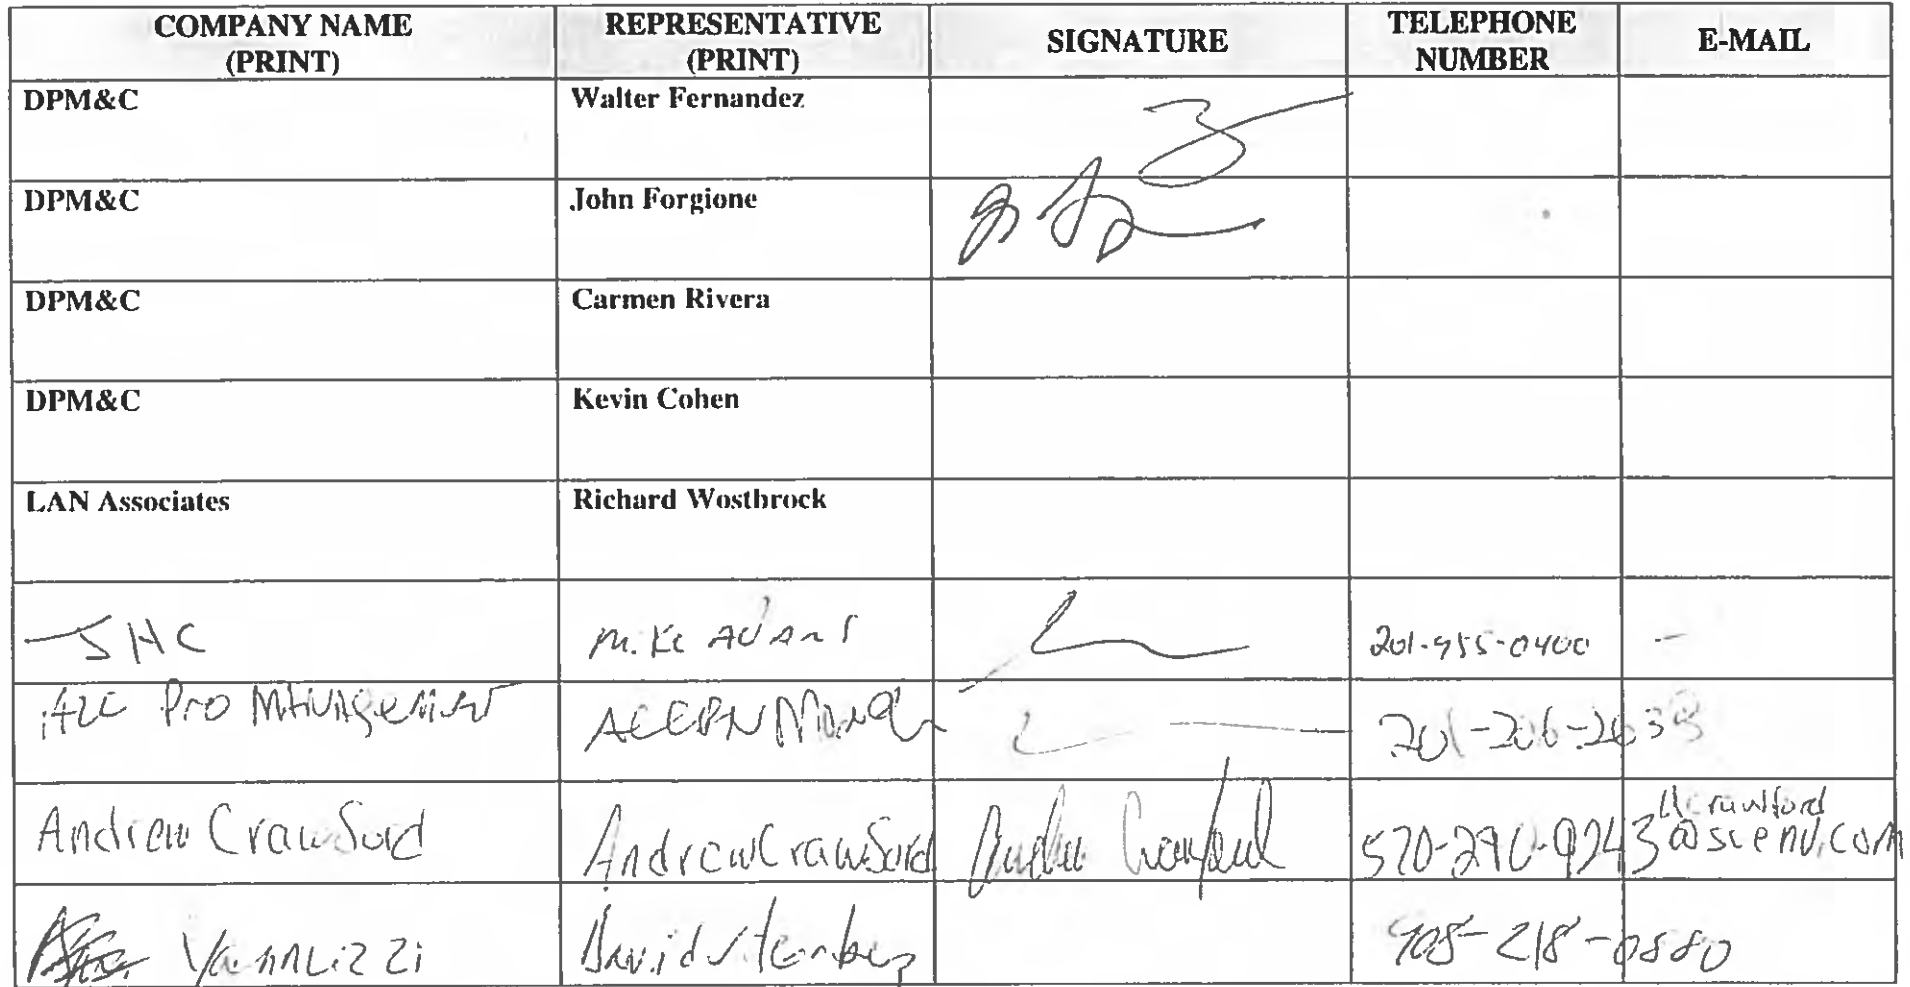 COMPANY NAME (PRINT) REPRESENTATIVE (PRINT) SIGNATURE TELEPHONE NUMBER E-MAIL
DPM&C Walter Fernandez
DPM&C John Forgione
DPM&C Carmen Rivera
DPM&C Kevin Cohen
LAN Associates Richard Wostbrock
JHC Mike 201-955-0400 -
Pro Management 201-206-2638
Andrew Crawford Andrew Crawford Andrew Crawford 570-290-9243 acrawford
@scenv.com
Vannuzzi David 908-218-0880